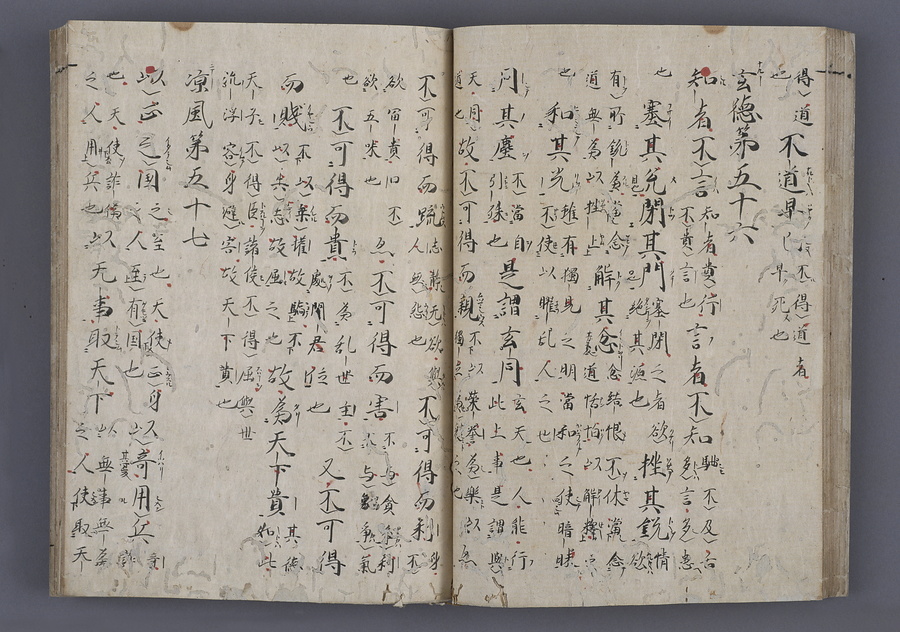 得道
也
不道早已
不得道者
早死也
玄德第五十六
知者不言
知者貴行
不貴言也
言者不知
駟不及舌
多言多患
也
塞其兌閉其門
塞閉之者欲
絕其源也
挫其銳
情
欲
有所銳為當念
道無為以挫止
也
解其忿
忿結恨不休當念
道恬怕以解釋之
和其光
雖有獨見之明當和之使暗昧
不使以曜乱人之也
同其塵
不當自
引殊也
是謂玄同
玄天也人能行
此上事是謂與
天同
道也
故不可得而親
不以榮譽為樂
獨立為哀也
不可得而踈
志靜无欲與
人無怨也
不可得而利
身
不
欲富貴口不
欲五味也
不可得而害
不与貪
爭氣
也
不可得而貴
不為乱世主不
處闇君位也
又不可得
而賤
不以乘權故驕不
以失志故屈之也
故為天下貴
其德
如此
天子不得臣諸侯不得屈與世
沉浮容身避害故天下貴也
淳風第五十七
以正之国
之至也天使正身
之人至有国也
以奇用兵
奇
詐
也天使詐偽
之人用兵也
以无事取天下
以無事無為
之人使取天